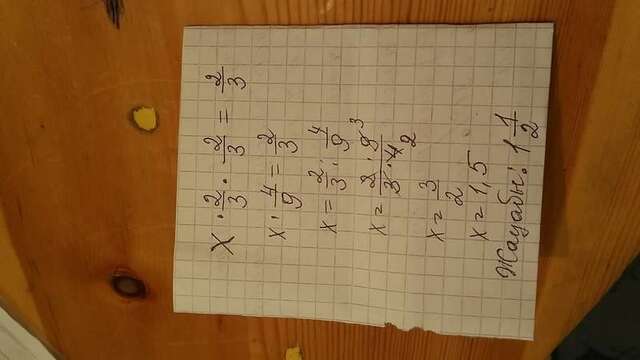 x · 2/3 · 2/3 = 2/3
x · 4/9 = 2/3
x = 2/3 : 4/9
x = 2·9³/3·4₂
x = 3/2
x = 1,5
Жауабы: 1 1/2